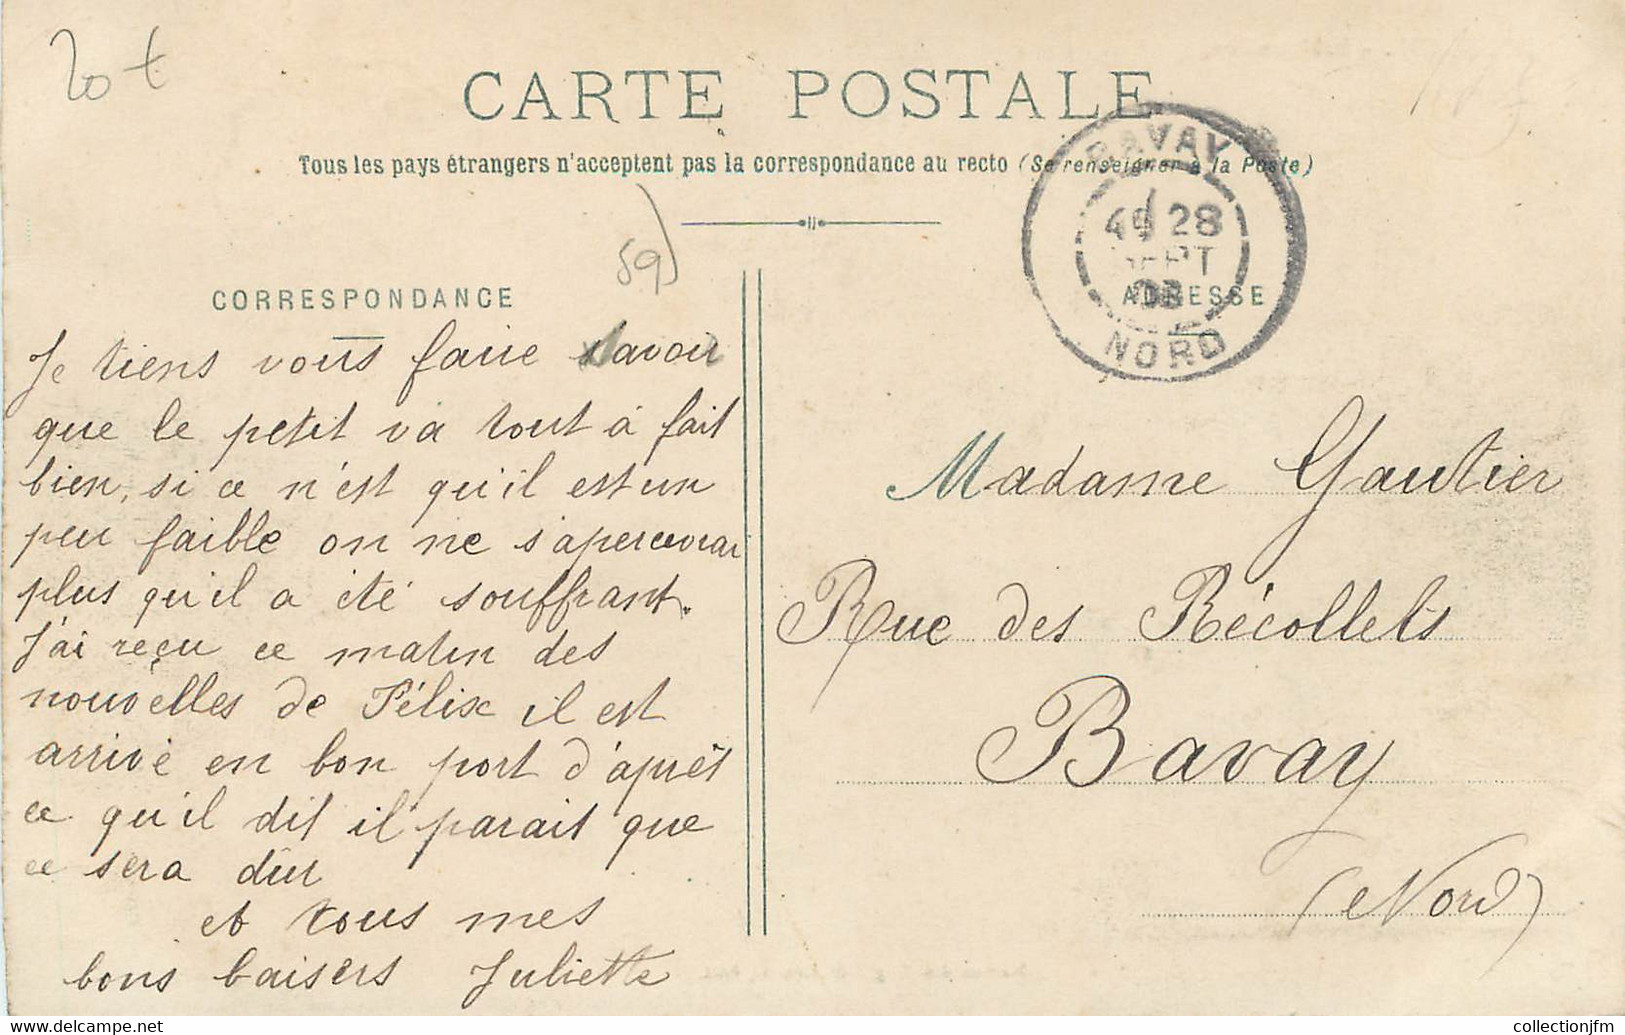 20 t
CARTE POSTALE
Tous les pays étrangers n'acceptent pas la correspondance au recto (Se renseigner à la Poste)
59)
BAVAY
28
SEPT
NORD
CORRESPONDANCE
ADRESSE
Je tiens vous faire savoir
que le petit va tout à fait
bien, si ce n'est qu'il est un
peu faible on ne s'apercevrai
plus qu'il a été souffrant.
J'ai reçu ce matin des
nouvelles de Félix il est
arrivé en bon port d'après
ce qu'il dit il parait que
ce sera dur
et tous mes
bons baisers Juliette
Madame Gautier
Rue des Récollets
Bavay
(Nord)
collectionjfm